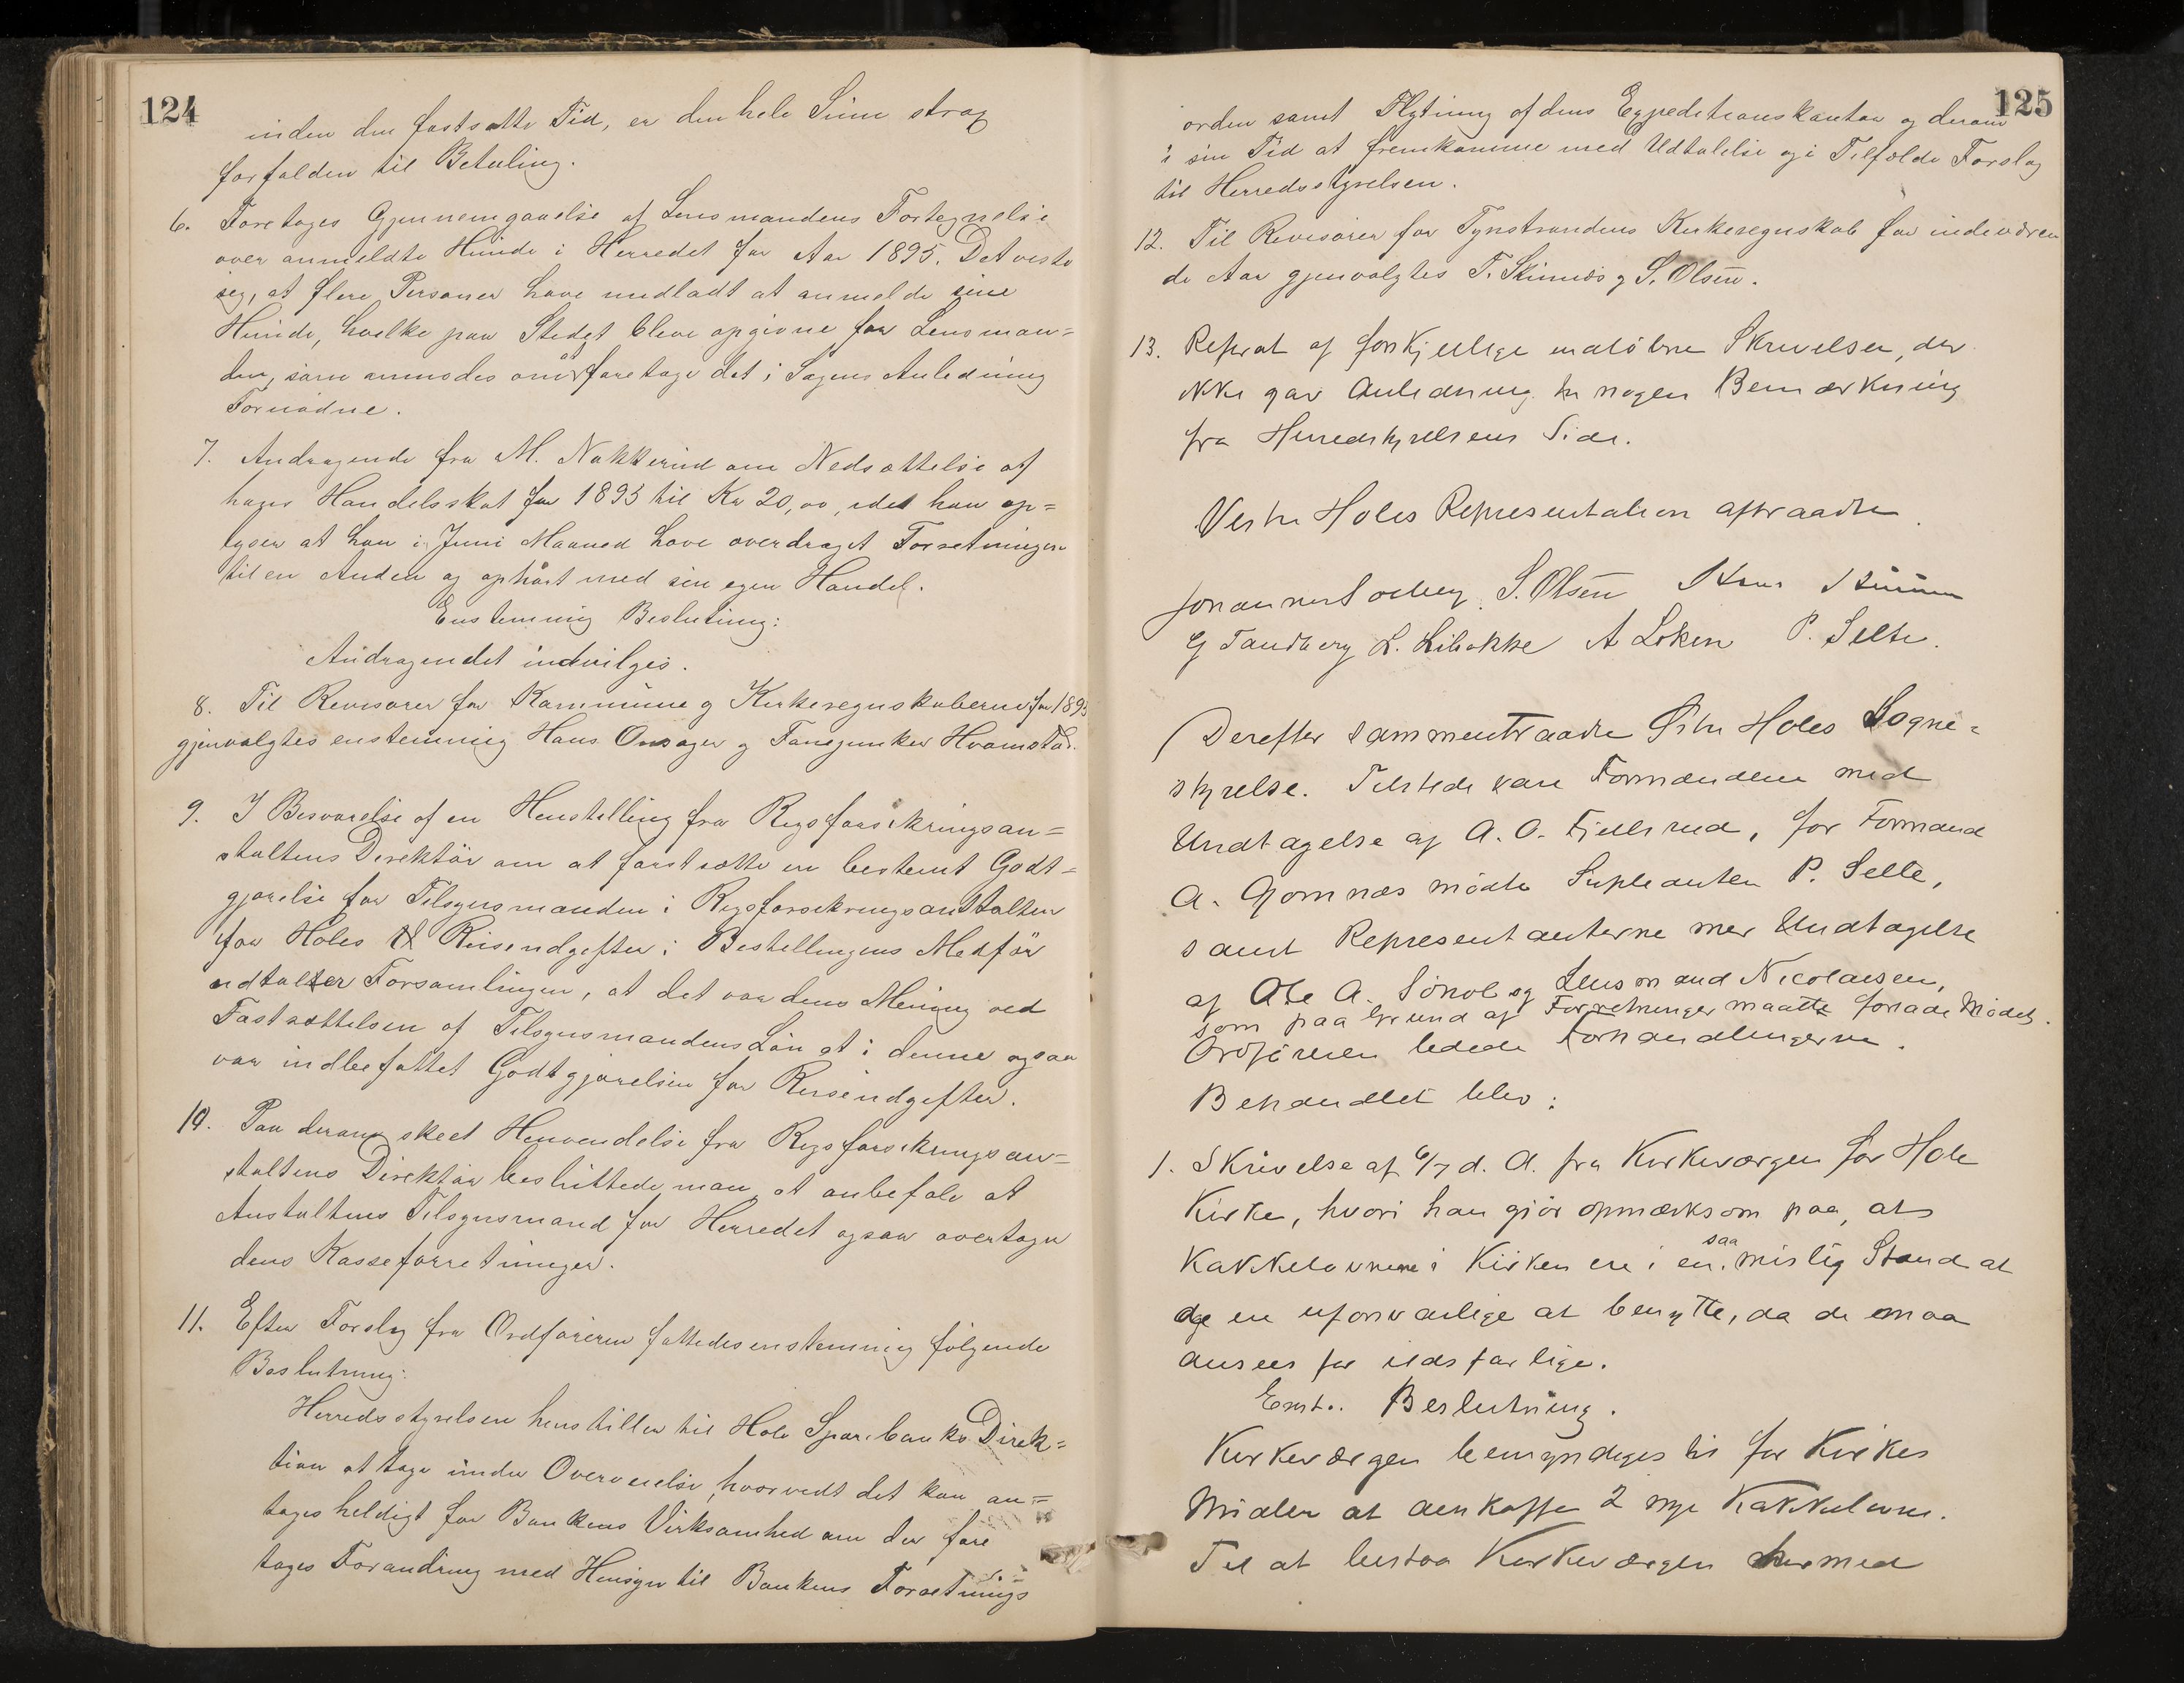 124
inden den fastsatte Tid, er den hele Sum strax
forfalden til Betaling.
6. Foretages Gjennemgaaelse af Lensmandens Fortegnelse
over anmeldte Hunde i Herredet for Aar 1895. Det viste
sig, at flere Personer have undladt at anmelde sine
Hunde, hvilke paa Stedet bleve opgivne for Lensman=
den, som anmodes om at foretage det i Sagens Anledning
Fornødne.
7. Andragende fra M. Nakkerud om Nedsættelse af
hans Handelsskat for 1893 til Kr 20,00, idet han op=
lyser at han i Juni Maaned have overdraget Forretningen
til en Anden og ophørt med sin egen Handel.
Enstemmig Beslutning:
Andragendet indvilges.
8. Til Revisorer for Kommune og Kirkeregnskaberne for 1893
gjenvalgtes enstemmig Hans Onsager og Fanejunker Hvamstad.
9. I Besvarelse af en Henstilling fra Rigsforsikringsan=
staltens Direktör om at fastsætte en bestemt Godt=
gjørelse for Tilsynsmanden i Rigsforsikringsanstalten
for Holes Reiseudgifter i Bestillingens Medför
udtalter Forsamlingen, at det var dens Mening ved
Fastsættelsen af Tilsynsmandens Løn at i denne ogsaa
var indbefattet Godtgjørelsen for Reiseudgifter.
10. Paa derom skeet Henvendelse fra Rigsforsikringsan=
staltens Direktör besluttede man at anbefale at
Anstaltens Tilsynsmand for Herredet ogsaa overtager
dens Kasseforretninger.
11. Efter Forslag fra Ordføreren fattedes enstemmig følgende
Beslutning:
Herredsstyrelsen henstiller til Hole Sparebanks Direk=
tion at tage under Overveielse, hvorvidt det kan an=
tages heldigt for Bankens Virksomhed om der fore
tages Forandring med Hensyn til Bankens Forretnings
125
orden samt Flytning af dens Expeditionskontor og derom
i sin Tid at fremkomme med Udtalelse og i Tilfælde Forslag
til Herredsstyrelsen.
12. Til Revisorer for Tyristrandens Kirkeregnskab for indeværen
de Aar gjenvalgtes T. Skinnes og S. Olsen.
13. Referat af forskjellige indløbne Skrivelser, der
ikke gav Anledning til nogen Bemærkning
fra Herredstyrelsens Side.
Vestre Holes Representation aftraadte.
Johannes Solberg. S. Olsen
G Tandberg L. Libakke A Löken P. Selte.
Derefter sammentraadte Østre Holes Sogne=
styrelse. Tilstede vare Formændene med
Undtagelse af A. O. Fjeldsrud, for Formand
A. Gomnæs mødte Supleanten P. Selte,
samt Representanterne mer Undtagelse
af Ole A. Sønol og Lensmand Nicolaisen,
som paa Grund af Forretninger maatte forlade Mødet.
Ordføreren ledede Forhandlingerne.
Behandlet blev:
1. Skrivelse af 6/7 d. A. fra Kirkeværgen for Hole
Kirke, hvori han gjør opmærksom paa, at
Kakkelovnene i Kirken ere i en saa mislig Stand at
de er uforsvarlige at benytte, da de maa
ansees for ildsfarlige.
Enst. Beslutning.
Kirkeværgen bemyndiges til for Kirkes
Midler at anskaffe 2 nye Kakkelovne.
Til at bistaa Kirkeværgen hermed